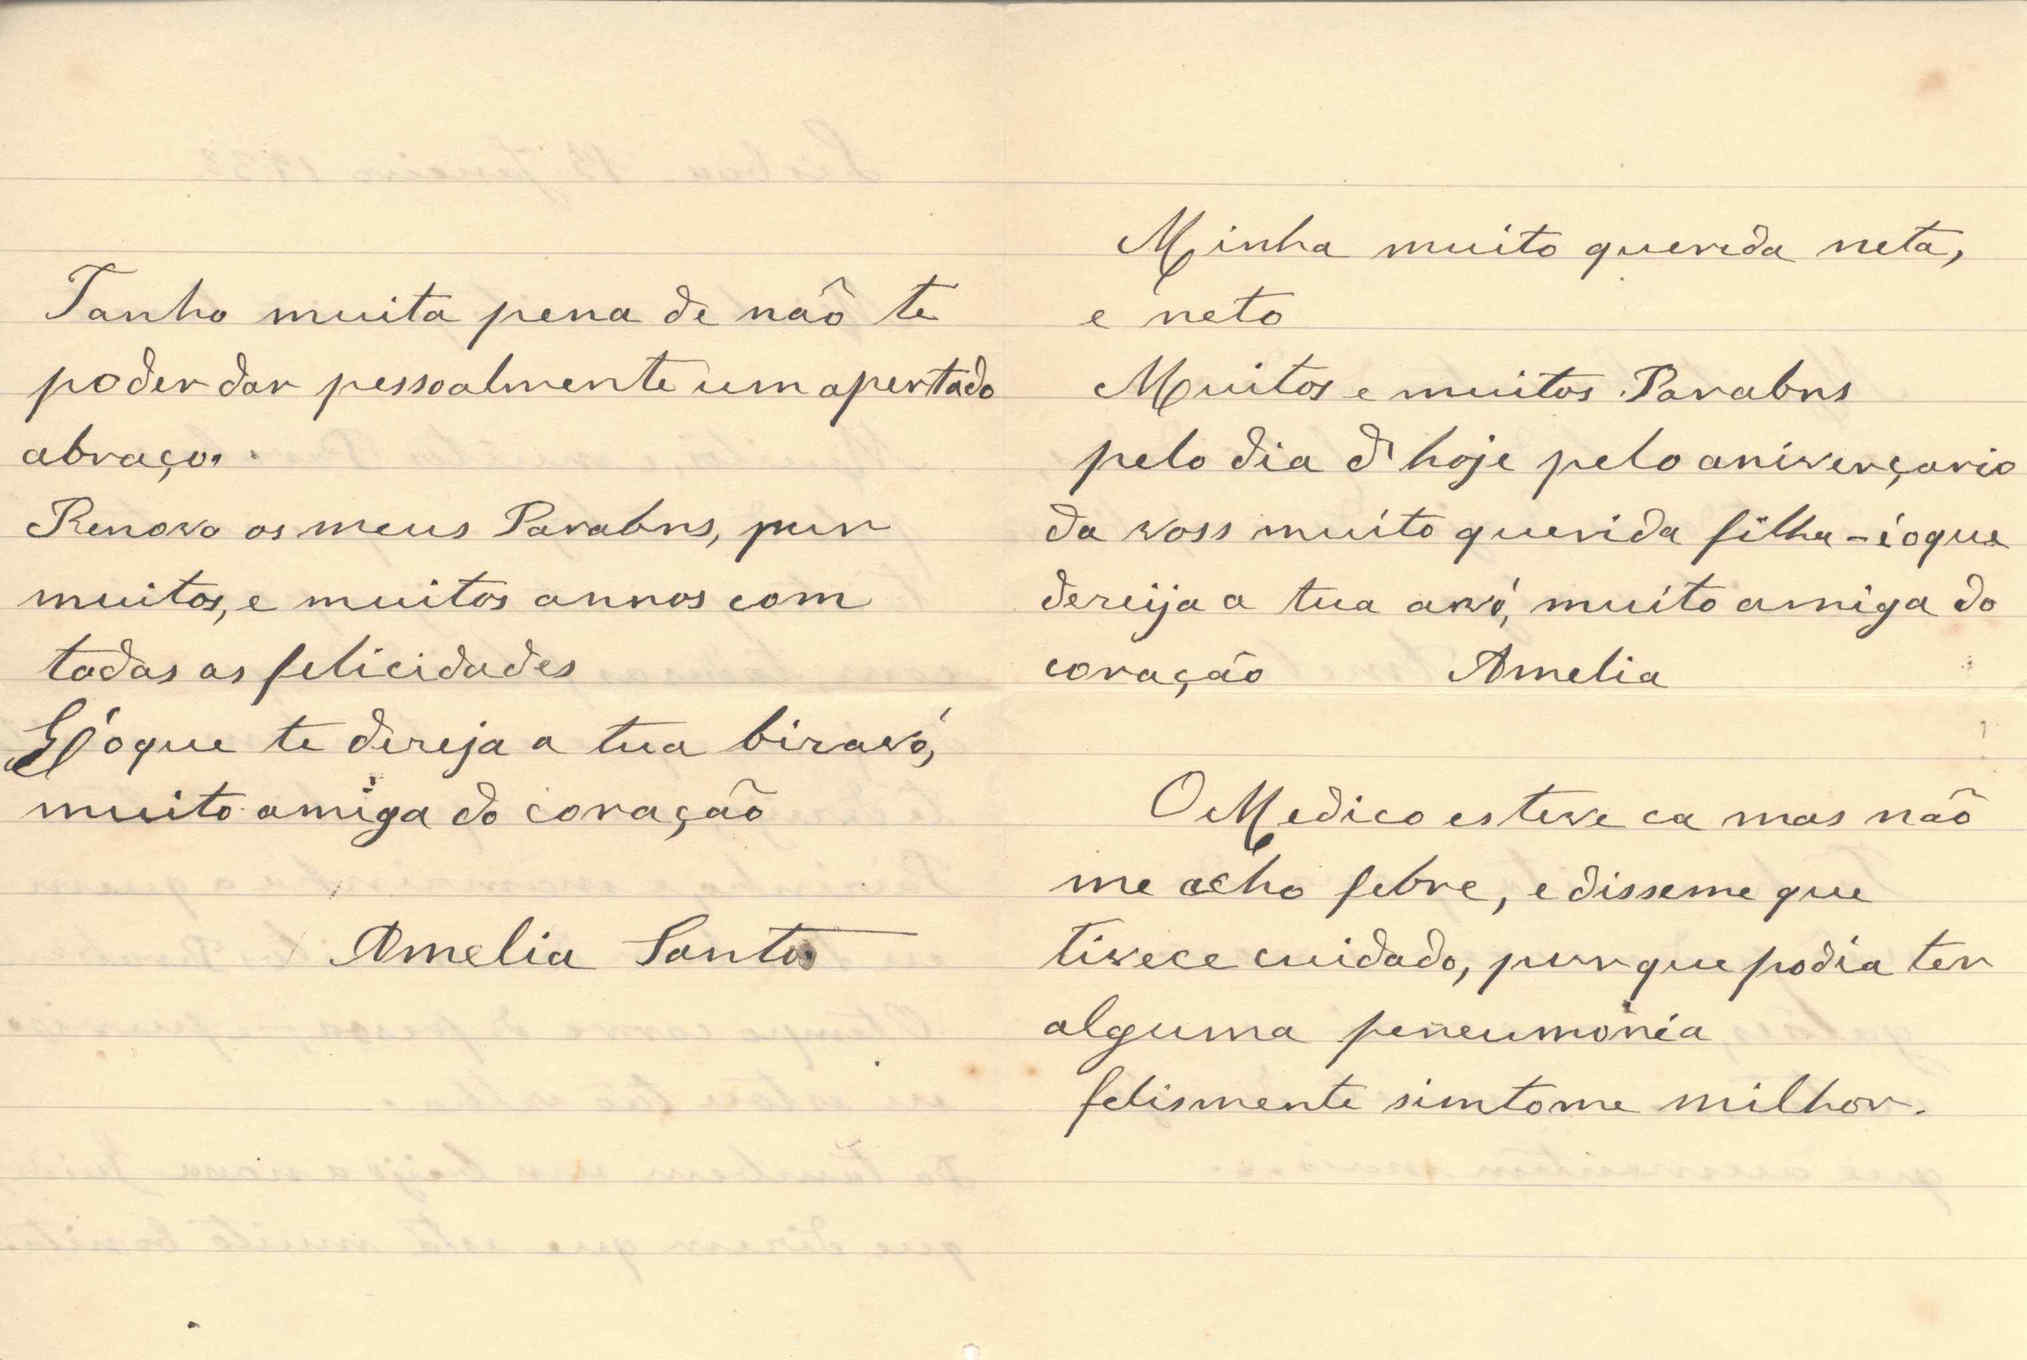 Tanho muita pena de não te
poder dar pessoalmente um apertado
abraço.
Renovo os meus Parabns, pur
muitos, e muitos annos com
todas as felicidades
É oque te dereja a tua biravó,
muito amiga do coração
Amelia Santos
Minha muito querida neta,
e neto
Muitos e muitos Parabns
pelo dia d'hoje pelo aniverçario
da voss muito querida filha - é oque
dereija a tua avó, muito amiga do
coração Amelia
O Medico esteve ca mas não
me acho febre, e disseme que
tivece cuidado, purque podia ter
alguma peneumonia
felismente simtome milhor.